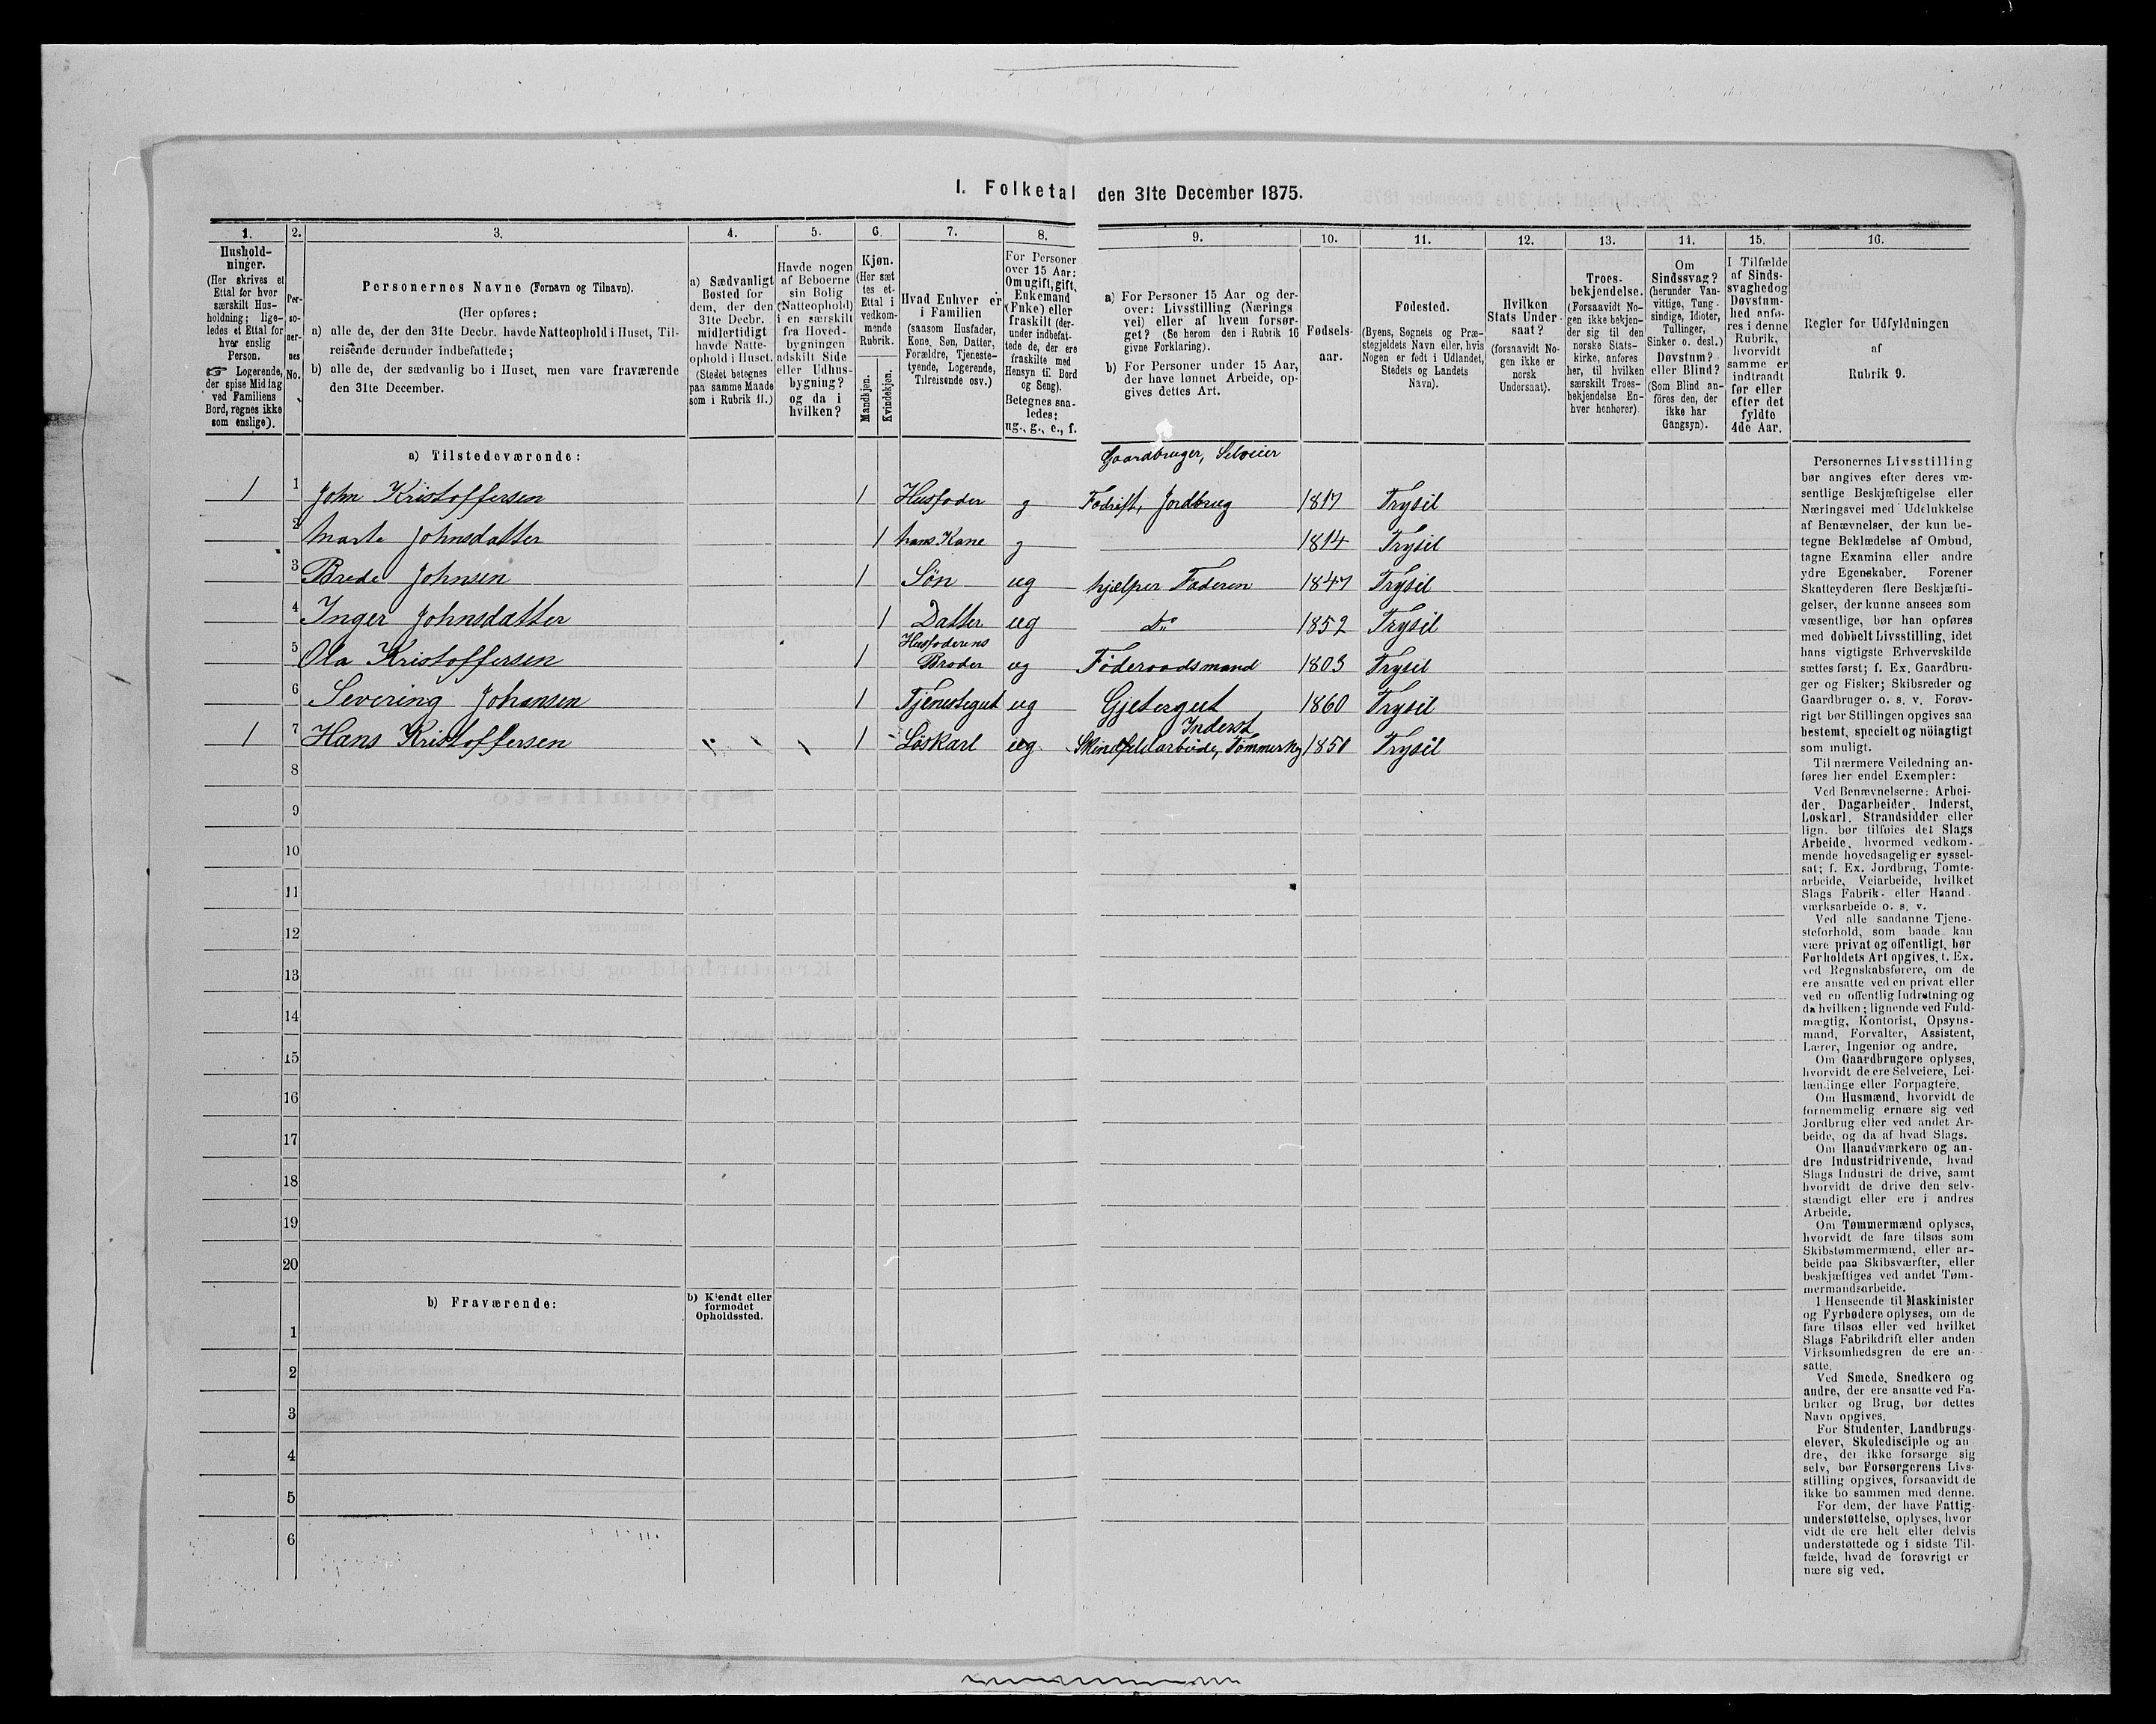 I. Folketal den 31te December 1875.
1. 2. 3. 4. 5. 6. 7. 8. 9. 10. 11. 12. 13. 14. 15. 16.
Hushold-
ninger.
(Her skrives et
Ettal for hver
særskilt Hus-
holdning; lige-
ledes et Ettal for
hver enslig
Person.
☞ Logerende,
der spise Middag
ved Familiens
Bord, regnes ikke
som enslige).
Per-
so-
ner-
nes
No.
Personernes Navne (Fornavn og Tilnavn).
(Her opføres:
a) alle de, der den 31te Decbr. havde Natteophold i Huset, Til-
reisende derunder indbefattede;
b) alle de, der sædvanlig bo i Huset, men vare fraværende
den 31te December.
a) Sædvanligt
Bosted for
dem, der den
31te Decbr.
midlertidigt
havde Natte-
ophold i Huset.
(Stedet betegnes
paa samme Maade
som i Rubrik 11.)
Havde nogen
af Beboerne
sin Bolig
(Natteophold)
i en særskilt
fra Hoved-
bygningen
adskilt Side
eller Udhus-
bygning?
og da i
hvilken?
Kjøn.
(Her sæt
tes et-
Ettal i
vedkom-
mende
Rubrik.
Mandkjøn.
Kvindekjøn.
Hvad Enhver er
i Familien
(saasom Husfader,
Kone, Søn, Datter,
Forældre, Tjeneste-
tyende, Logerende,
Tilreisende osv.)
For Personer
over 15 Aar:
Om ugift, gift,
Enkemand
(Enke) eller
fraskilt (der-
under indbefat-
tede de, der ere
fraskilte med
Hensyn til Bord
og Seng).
Betegnes saa-
ledes:
ug., g., e., f.
a) For Personer 15 Aar og der-
over: Livsstilling (Nærings
vei) eller af hvem forsør-
get? (Se herom den i Rubrik 16
givne Forklaring).
b) For Personer under 15 Aar,
der have lønnet Arbeide, op-
gives dettes Art.
Fødsels-
aar.
Fødested.
(Byens, Sognets og Præ-
stegjeldets Navn eller, hvis
Nogen er født i Udlandet,
Stedets og Landets
Navn).
Hvilken
Stats Under-
saat?
(forsaavidt No-
gen ikke er
norsk
Undersaat).
Troes-
bekjendelse.
(Forsaavidt No-
gen ikke bekjen-
der sig til den
norske Stats-
kirke, anføres
her, til hvilken
særskilt Troes-
bekjendelse En-
hver henhører).
Om
Sindssvag?
(herunder Van-
vittige, Tung-
sindige, Idioter,
Tullinger,
Sinker o. desl.)
Døvstum?
eller Blind?
(Som Blind an-
föres den, der
ikke har
Gangsyn).
I Tilfælde
af Sinds-
svaghed og
Døvstum-
hed anfø-
res i denne
Rubrik,
hvorvidt
samme er
indtraadt
før eller
efter det
fyldte
4de Aar.
Regler for Udfyldningen
af
Rubrik 9.
a) Tilstedeværende:
Gaardbruger, Selveier
1 1 John Kristoffersen 1 Husfader g Fædrift, Jordbrug 1817 Trysil
2 Marte Johnsdatter 1 hans Kone g 1814 Trysil
3 Brede Johnsen 1 Søn ug hjælper Faderen 1847 Trysil
4 Inger Johnsdatter 1 Datter ug do 1852 Trysil
Husfaderens
5 Ola Kristoffersen 1 Broder ug Føderaadsmand 1803 Trysil
6 Severing Johansen 1 Tjenestegut ug Gjetergut 1860 Trysil
Inderst
1 7 Hans Kristoffersen 1 Løskarl ug Skindfeldarbeide, Tømmerhug 1850 Trysil
8
9
10
11
12
13
14
15
16
17
18
19
20
b) Fraværende:
b) Kjendt eller
formodet
Opholdssted.
1
2
3
4
5
6
Personernes Livsstilling
bør angives efter deres væ-
sentlige Beskjæftigelse eller
Næringsvei med Udelukkelse
af Benævnelser, der kun be-
tegne Beklædelse af Ombud,
tagne Examina eller andre
ydre Egenskaber. Forener
Skatteyderen flere Beskjæfti-
gelser, der kunne ansees som
væsentlige, bør han opføres
med dobbelt Livsstilling, idet
hans vigtigste Erhvervskilde
sættes først; f. Ex. Gaardbru-
ger og Fisker; Skibsreder og
Gaardbruger o. s. v. Forøv-
rigt bør Stillingen opgives saa
bestemt, specielt og nöiagtigt
som muligt.
Til nærmere Veiledning an-
føres her endel Exempler:
Ved Benævnelserne: Arbei-
der, Dagarbeider, Inderst,
Løskarl, Strandsidder eller
lign. bør tilføies det Slags
Arbeide, hvormed vedkom-
mende hovedsagelig er syssel-
sat; f. Ex. Jordbrug, Tomte-
arbeide, Veiarbeide, hvilket
Slags Fabrik- eller Haand-
værksarbeide o. s. v.
Ved alle saadanne Tjene-
steforhold, som baade kan
være privat og offentligt, bør
Forholdets Art opgives, f. Ex.
ved Regnskabsførere, om de
ere ansatte ved en privat eller
ved en offentlig Indretning og
da hvilken; lignende ved Fuld-
mægtig, Kontorist, Opsyns-
mand, Forvalter, Assistent,
Lærer, Ingeniør og andre.
Om Gaardbrugere oplyses,
hvorvidt de ere Selveiere, Lei-
lændinge eller Forpagtere.
Om Husmænd, hvorvidt de
fornemmelig ernære sig ved
Jordbrug eller ved andet Ar-
beide, og da af hvad Slags.
Om Haandværkere og an-
dre Industridrivende, hvad
Slags Industri de drive, samt
hvorvidt de drive den selv-
stændigt eller ere i andres
Arbeide.
Om Tømmermænd oplyses,
hvorvidt de fare tilsøs som
Skibstømmermænd, eller ar-
beide paa Skibsværfter, eller
beskjæftiges ved andet Tøm-
mermandsarbeide.
I Henseende til Maskinister
og Fyrbødere oplyses, om de
fare tilsøs eller ved hvilket
Slags Fabrikdrift eller anden
Virksomhedsgren de ere an-
satte.
Ved Smede, Snedkere og
andre, der ere ansatte ved Fa-
briker og Brug, bør dettes
Navn opgives.
For Studenter, Landbrugs-
elever, Skoledisciple og an
dre, der ikke forsørge sig
selv, bør Forsørgerens Livs-
stilling opgives, forsaavidt de
ikke bo sammen med denne.
For dem, der have Fattig-
understøttelse, oplyses, hvor
vidt de ere helt eller delvis
understøttede og i sidste Til-
fælde, hvad de forøvrigt er
nære sig ved.